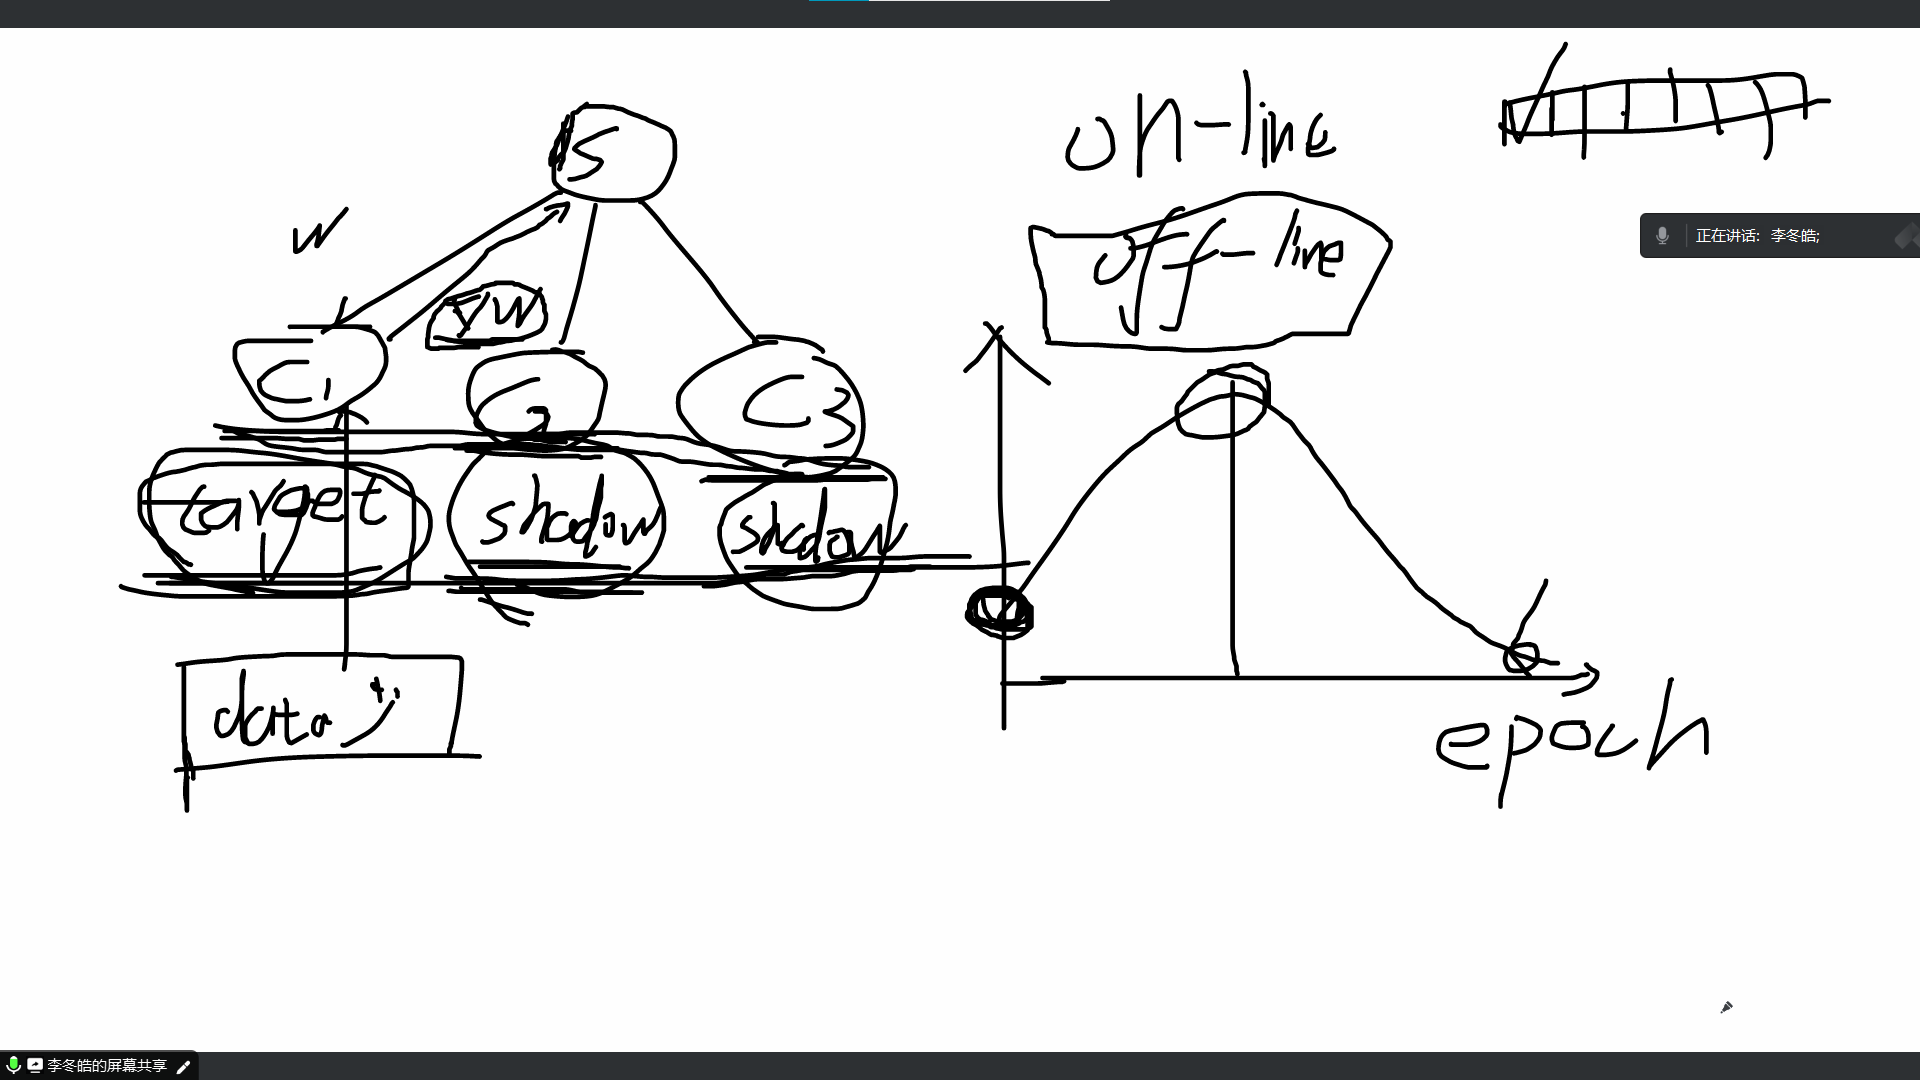 S
w
∇w
C1
C2
C3
target
shadow
shadow
data
on-line
off-line
epoch
正在讲话: 李冬皓;
李冬皓的屏幕共享